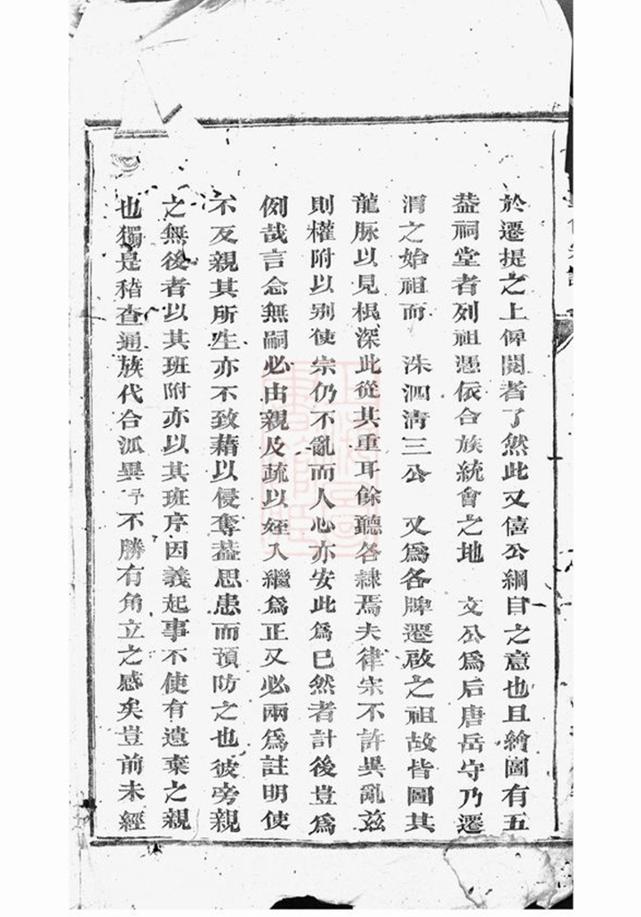 於遷提之上俾閱者了然此又僖公綱目之意也且繪圖有五
葢祠堂者列祖憑依合族統會之地 文公爲后唐岳守乃遷
渭之始祖而 洙泗淸三公 又爲各脾遷啟之祖故皆圖其
龍脉以見根深此從其重耳餘聽各隷焉夫律宗不許異亂茲
則權附以别使宗仍不亂而人心亦安此爲已然者計後豈爲
例哉言念無嗣必由親及疏以姪入繼爲正又必兩爲註明使
不反親其所生亦不致藉以侵奪葢思患而預防之也彼旁親
之無後者以其班附亦以其班序因義起事不使有遺棄之親
也獨是稽查通族代合派異予不勝有角立之感矣豈前未經